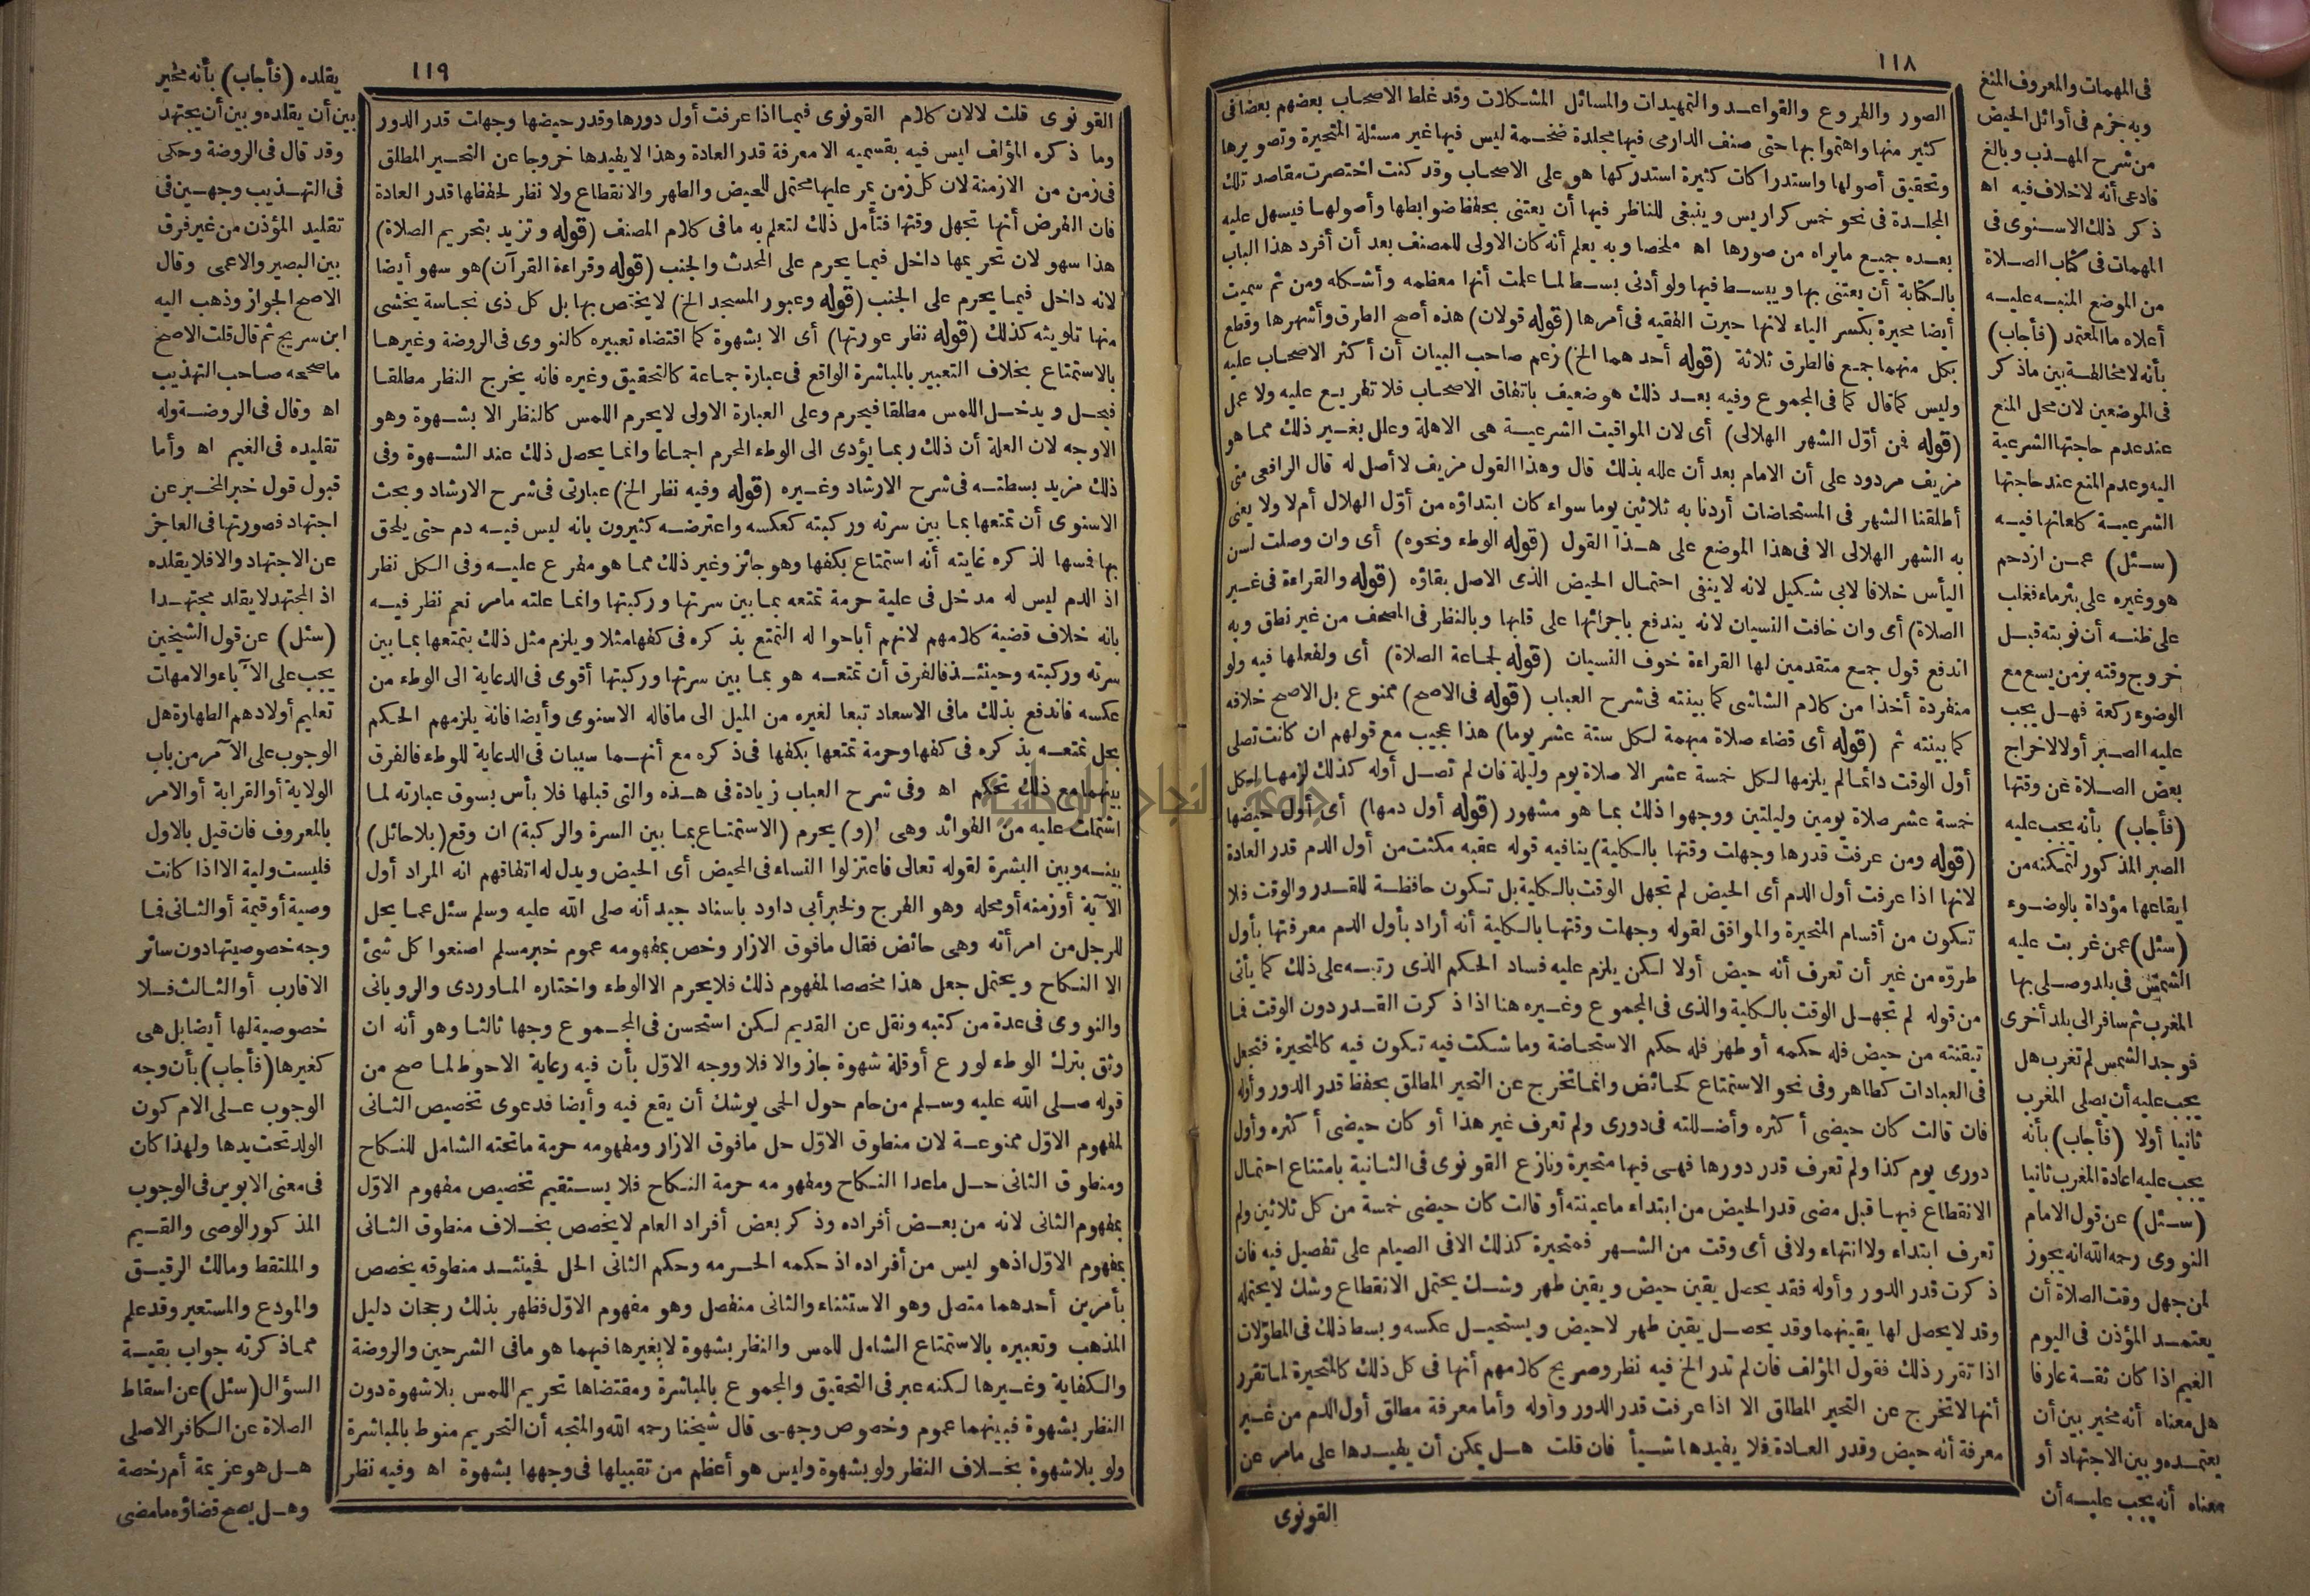 ١١٨
الصور والفروع والقواعد والتمهيدات والمسائل المشكلات وقد غلط الاصحاب بعضهم بعضا فى
كثير منها واهتموا بها حتى صنف الدارمى فيها مجلدة ضخمة ليس فيها غير مسئلة المتحيرة وتصويرها
وتحقيق أصولها واستدراكات كثيرة استدركها هو على الاصحاب وقد كنت اختصرت مقاصد تلك
المجلدة فى نحو خمس كراريس وينبغى للناظر فيها أن يعتنى بحفظ ضوابطها وأصولها فيسهل عليه
بعده جميع ما يراه من صورها اه ملخصا وبه يعلم أنه كان الاولى للمصنف بعد أن أفرد هذا الباب
بالكتابة أن يعتنى بها ويبسط فيها ولو أدنى بسط لما علمت أنها معظمه وأشكله ومن ثم سميت
أيضا محيرة بكسر الياء لانها حيرت الفقيه فى أمرها (قوله قولان) هذه أصح الطرق وأشهرها وقطع
بكل منهما جمع فالطرق ثلاثة (قوله أحدهما الخ) زعم صاحب البيان أن أكثر الاصحاب عليه
وليس كما قال كما فى المجموع وفيه بعد ذلك هو ضعيف باتفاق الاصحاب فلا تفريع عليه ولا عمل
(قوله فمن أوّل الشهر الهلالى) أى لان المواقيت الشرعية هى الاهلة وعلل بغير ذلك مما هو
مزيف مردود على أن الامام بعد أن علله بذلك قال وهذا القول مزيف لا أصل له قال الرافعى متى
أطلقنا الشهر فى المستحاضات أردنا به ثلاثين يوما سواء كان ابتداؤه من أوّل الهلال أم لا ولا يعنى
به الشهر الهلالى الا فى هذا الموضع على هذا القول (قوله الوطء ونحوه) أى وان وصلت لسن
اليأس خلافا لابى شكيل لانه لا ينفى احتمال الحيض الذى الاصل بقاؤه (قوله والقراءة فى غير
الصلاة) أى وان خافت النسيان لانه يندفع باجرائها على قلبها وبالنظر فى المصحف من غير نطق وبه
اندفع قول جمع متقدمين لها القراءة خوف النسيان (قوله لجماعة الصلاة) أى ولفعلها فيه ولو
منفردة أخذا من كلام الشاشى كما بينته فى شرح العباب (قوله فى الاصح) ممنوع بل الاصح خلافه
كما بينته ثم (قوله أى قضاء صلاة مبهمة لكل ستة عشر يوما) هذا عجيب مع قولهم ان كانت تصلى
أول الوقت دائما لم يلزمها لكل خمسة عشر الا صلاة يوم وليلة فان لم تصل أوله كذلك لزمها لكل
خمسة عشر صلاة يومين وليلتين ووجهوا ذلك بما هو مشهور (قوله أول دمها) أى أول حيضها
(قوله ومن عرفت قدرها وجهلت وقتها بالكلية) ينافيه قوله عقبه مكثت من أول الدم قدر العادة
لانها اذا عرفت أول الدم أى الحيض لم تجهل الوقت بالكلية بل تكون حافظة للقدر والوقت فلا
تكون من أقسام المتحيرة والموافق لقوله وجهلت وقتها بالكلية أنه أراد بأول الدم معرفتها بأول
طروّه من غير أن تعرف أنه حيض أولا لكن يلزم عليه فساد الحكم الذى رتبه على ذلك كما يأتى
من قوله لم تجهل الوقت بالكلية والذى فى المجموع وغيره هنا اذا ذكرت القدر دون الوقت فما
تيقنته من حيض فله حكمه أو طهر فله حكم الاستحاضة وما شكت فيه تكون فيه كالمتحيرة فتجعل
فى العبادات كطاهر وفى نحو الاستمتاع كحائض وانما تخرج عن التحير المطلق بحفظ قدر الدور وأوله
فان قالت كان حيضى أكثره وأضللته فى دورى ولم تعرف غير هذا أو كان حيضى أكثره وأول
دورى يوم كذا ولم تعرف قدر دورها فهى فيها متحيرة ونازع القونوى فى الثانية بامتناع احتمال
الانقطاع فيها قبل مضى قدر الحيض من ابتداء ما عينته أو قالت كان حيضى خمسة من كل ثلاثين ولم
تعرف ابتداء ولا انتهاء ولا فى أى وقت من الشهر فمتحيرة كذلك الا فى الصيام على تفصيل فيه فان
ذكرت قدر الدور وأوله فقد يحصل يقين حيض ويقين طهر وشك يحتمل الانقطاع وشك لا يحتمله
وقد لا يحصل لها يقينهما وقد يحصل يقين طهر لا حيض ويستحيل عكسه وبسط ذلك فى المطوّلات
اذا تقرر ذلك فقول المؤلف فان لم تدر الخ فيه نظر وصريح كلامهم أنها فى كل ذلك كالمتحيرة لما تقرر
أنها لا تخرج عن التحير المطلق الا اذا عرفت قدر الدور وأوله وأما معرفة مطلق أول الدم من غير
معرفة أنه حيض وقدر العادة فلا يفيدها شيأ فان قلت هل يمكن أن يفيدها على ما مر عن
القونوى
فى المهمات والمعروف المنع
وبه جزم فى أوائل الحيض
من شرح المهذب وبالغ
فادعى أنه لا خلاف فيه اه
ذكر ذلك الاسنوى فى
المهمات فى كتاب الصلاة
من الموضع المنبه عليه
أعلاه ما المعتمد (فأجاب)
بأنه لا مخالطة بين ما ذكر
فى الموضعين لان محل المنع
عند عدم حاجتها الشرعية
اليه وعدم المنع عند حاجتها
الشرعية كلعانها فيه
(سئل) عمن ازدحم
هو وغيره على بئر ماء فغلب
على ظنه أن نوبته قبل
خروج وقته بزمن يسع مع
الوضوء ركعة فهل يجب
عليه الصبر أولا لاخراج
بعض الصلاة عن وقتها
(فأجاب) بأنه يجب عليه
الصبر المذكور لتمكنه من
ايقاعها مؤداة بالوضوء
(سئل) عمن غربت عليه
الشمس فى بلد وصلى بها
المغرب ثم سافر الى بلد أخرى
فوجد الشمس لم تغرب هل
يجب عليه أن يصلى المغرب
ثانيا أولا (فأجاب) بأنه
يجب عليه اعادة المغرب ثانيا
(سئل) عن قول الامام
النووى رحمه الله انه يجوز
لمن جهل وقت الصلاة أن
يعتمد المؤذن فى اليوم
الغيم اذا كان ثقة عارفا
هل معناه أنه مخير بين أن
يعتمده وبين الاجتهاد أو
معناه أنه يجب عليه أن
١١٩
القونوى قلت لا لان كلام القونوى فيما اذا عرفت أول دورها وقدر حيضها وجهلت قدر الدور
وما ذكره المؤلف ليس فيه بقسميه الا معرفة قدر العادة وهذا لا يفيدها خروجا عن التحير المطلق
فى زمن من الازمنة لان كل زمن يمر عليها محتمل للحيض والطهر والانقطاع ولا نظر لحفظها قدر العادة
فان الفرض أنها تجهل وقتها فتأمل ذلك لتعلم به ما فى كلام المصنف (قوله وتزيد بتحريم الصلاة)
هذا سهو لان تحريمها داخل فيما يحرم على المحدث والجنب (قوله وقراءة القرآن) هو سهو أيضا
لانه داخل فيما يحرم على الجنب (قوله وعبور المسجد الخ) لا يختص بها بل كل ذى نجاسة يخشى
منها تلويثه كذلك (قوله نظر عورتها) أى الا بشهوة كما اقتضاه تعبيره كالنووى فى الروضة وغيرها
بالاستمتاع بخلاف التعبير بالمباشرة الواقع فى عبارة جماعة كالتحقيق وغيره فانه يخرج النظر مطلقا
فيحل ويدخل اللمس مطلقا فيحرم وعلى العبارة الاولى لا يحرم اللمس كالنظر الا بشهوة وهو
الاوجه لان العلة أن ذلك ربما يؤدى الى الوطء المحرم اجماعا وانما يحصل ذلك عند الشهوة وفى
ذلك مزيد بسطته فى شرح الارشاد وغيره (قوله وفيه نظر الخ) عبارتى فى شرح الارشاد وبحث
الاسنوى أن تمتعها بما بين سرته وركبته كعكسه واعترضه كثيرون بانه ليس فيه دم حتى يلحق
بها فمسها لذكره غايته أنه استمتاع بكفها وهو جائز وغير ذلك مما هو مفرع عليه وفى الكل نظر
اذ الدم ليس له مدخل فى علية حرمة تمتعه بما بين سرتها وركبتها وانما علته ما مر نعم نظر فيه
بانه خلاف قضية كلامهم لانهم أباحوا له التمتع بذكره فى كفها مثلا ويلزم مثل ذلك بتمتعها بما بين
سرته وركبته وحينئذ فالفرق أن تمتعه هو بما بين سرتها وركبتها أقوى فى الدعاية الى الوطء من
عكسه فاندفع بذلك ما فى الاسعاد تبعا لغيره من الميل الى ما قاله الاسنوى وأيضا فانه يلزمهم الحكم
بحل تمتعه بذكره فى كفها وحرمة تمتعها بكفها فى ذكره مع أنهما سيبان فى الدعاية للوطء فالفرق
بينهما مع ذلك تحكم اه وفى شرح العباب زيادة فى هذه والتى قبلها فلا بأس بسوق عبارته لما
اشتملت عليه من الفوائد وهى (و) يحرم (الاستمتاع بما بين السرة والركبة) ان وقع (بلا حائل)
بينه وبين البشرة لقوله تعالى فاعتزلوا النساء فى المحيض أى الحيض ويدل له اتفاقهم انه المراد أول
الآية أو زمنه أو محله وهو الفرج ولخبر أبى داود باسناد جيد أنه صلى الله عليه وسلم سئل عما يحل
للرجل من امرأته وهى حائض فقال ما فوق الازار وخص بمفهومه عموم خبر مسلم اصنعوا كل شئ
الا النكاح ويحتمل جعل هذا مخصصا لمفهوم ذلك فلا يحرم الا الوطء واختاره الماوردى والرويانى
والنووى فى عدة من كتبه ونقل عن القديم لكن استحسن فى المجموع وجها ثالثا وهو أنه ان
وثق بترك الوطء لورع أو قلة شهوة جاز والا فلا ووجه الاوّل بأن فيه رعاية الاحوط لما صح من
قوله صلى الله عليه وسلم من حام حول الحمى يوشك أن يقع فيه وأيضا فدعوى تخصيص الثانى
لمفهوم الاوّل ممنوعة لان منطوق الاوّل حل ما فوق الازار ومفهومه حرمة ما تحته الشامل للنكاح
ومنطوق الثانى حل ما عدا النكاح ومفهومه حرمة النكاح فلا يستقيم تخصيص مفهوم الاوّل
بمفهوم الثانى لانه من بعض أفراده وذكر بعض أفراد العام لا يخصص بخلاف منطوق الثانى
بمفهوم الاوّل اذ هو ليس من أفراده اذ حكمه الحرمه وحكم الثانى الحل فحينئذ منطوقه يخصص
بأمرين أحدهما متصل وهو الاستثناء والثانى منفصل وهو مفهوم الاوّل فظهر بذلك رجحان دليل
المذهب وتعبيره بالاستمتاع الشامل للمس والنظر بشهوة لا بغيرها فيهما هو ما فى الشرحين والروضة
والكفاية وغيرها لكنه عبر فى التحقيق والمجموع بالمباشرة ومقتضاها تحريم اللمس بلا شهوة دون
النظر بشهوة فبينهما عموم وخصوص وجهى قال شيخنا رحمه الله والمتجه أن التحريم منوط بالمباشرة
ولو بلا شهوة بخلاف النظر ولو بشهوة وليس هو أعظم من تقبيلها فى وجهها بشهوة اه وفيه نظر
يقلده (فأجاب) بأنه مخير
بين أن يقلده وبين أن يجتهد
وقد قال فى الروضة وحكى
فى التهذيب وجهين فى
تقليد المؤذن من غير فرق
بين البصير والاعمى وقال
الاصح الجواز وذهب اليه
ابن سريج ثم قال قلت الاصح
ما صححه صاحب التهذيب
اه وقال فى الروضة وله
تقليده فى الغيم اه وأما
قبول قول خبر المخبر عن
اجتهاد فصورتها فى العاجز
عن الاجتهاد والا فلا يقلده
اذ المجتهد لا يقلد مجتهدا
(سئل) عن قول الشيخين
يجب على الآباء والامهات
تعليم أولادهم الطهارة هل
الوجوب على الآمر من باب
الولاية أو القرابة أو الامر
بالمعروف فان قيل بالاول
فليست ولية الا اذا كانت
وصية أو قيمة أو الثانى فما
وجه خصوصيتها دون سائر
الاقارب أو الثالث فلا
خصوصية لها أيضا بل هى
كغيرها (فأجاب) بأن وجه
الوجوب على الام كون
الولد تحت يدها ولهذا كان
فى معنى الابوين فى الوجوب
المذكور الوصى والقيم
والملتقط ومالك الرقيق
والمودع والمستعير وقد علم
مما ذكرته جواب بقية
السؤال (سئل) عن اسقاط
الصلاة عن الكافر الاصلى
هل هو عزيمة أم رخصة
وهل يصح قضاؤه ما مضى
جامعة النجاح الوطنية